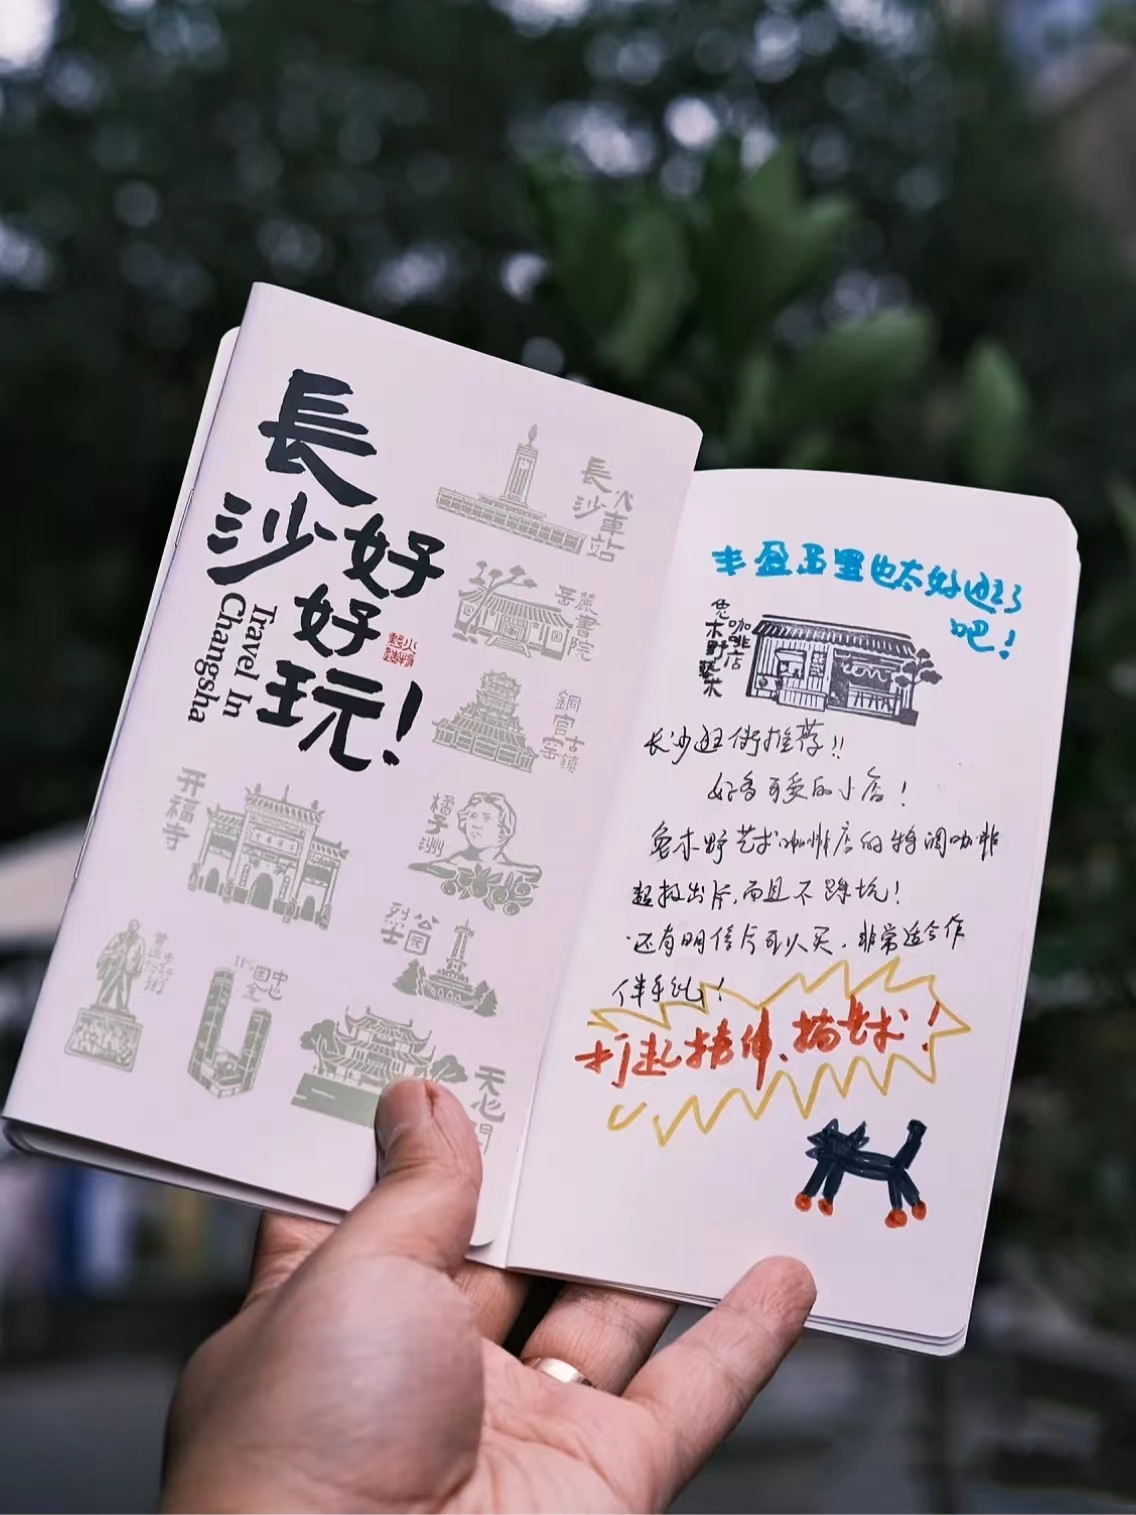 長
沙好
好
玩！
Travel In
Changsha
長沙火車站
岳麓書院
銅官窑古鎮
开福寺
橘子洲
烈士公园
黄兴路步行街
国金中心
天心阁
丰盈里也太好逛了
吧！
咖啡店
木野艺术
长沙逛街推荐!!
好多可爱的小店！
木野艺术咖啡店的特调咖啡
超级出片,而且不踩坑！
还有明信片可以买，非常适合作
伴手礼！
打起精神、搞艺术！